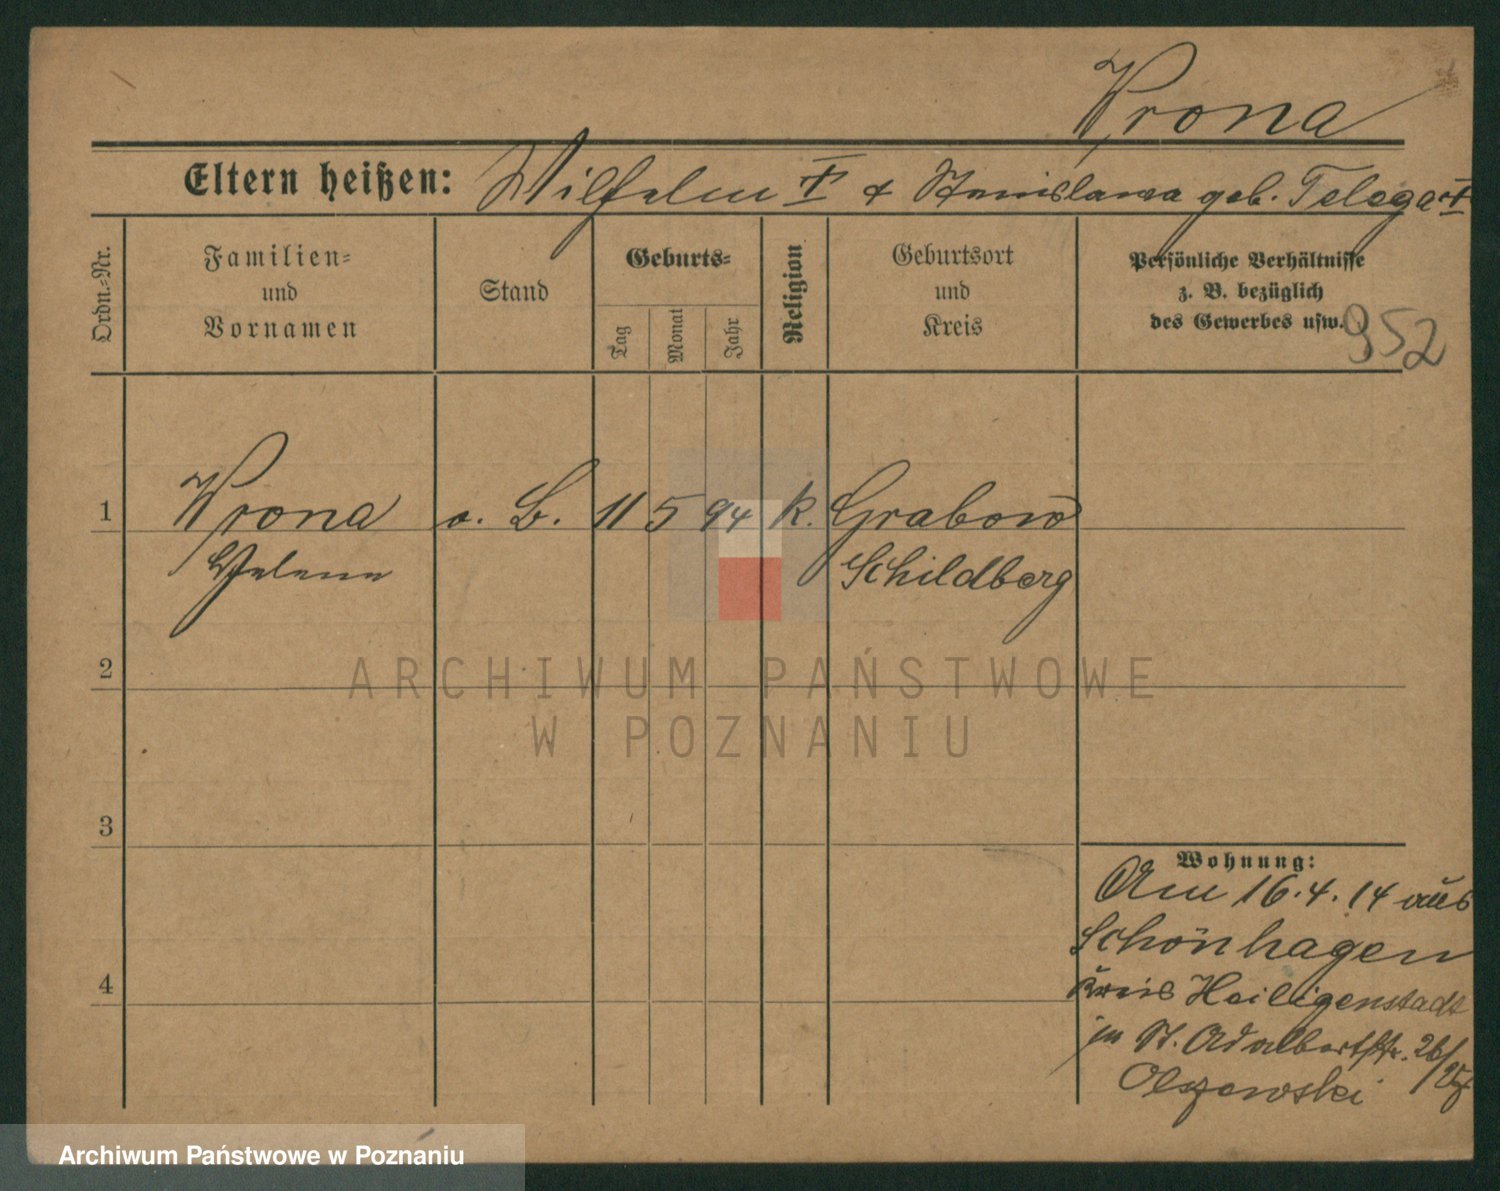 Krona
Eltern heißen: Wilhelm † & Stanislawa geb. Telega †
Ordn.-Nr.
Familien- und Vornamen
Stand
Geburts-
Tag
Monat
Jahr
Religion
Geburtsort und Kreis
Persönliche Verhältnisse
z. B. bezüglich
des Gewerbes usw.
952
1 Krona o. B. 11 5 94 k. Grabow
Helene Schildberg
2
3
4
Wohnung:
Am 16.4.14 aus
Schönhagen
Kreis Heiligenstadt
St. Adalbertstr. 26/
Olszewski
ARCHIWUM PAŃSTWOWE
W POZNANIU
Archiwum Państwowe w Poznaniu